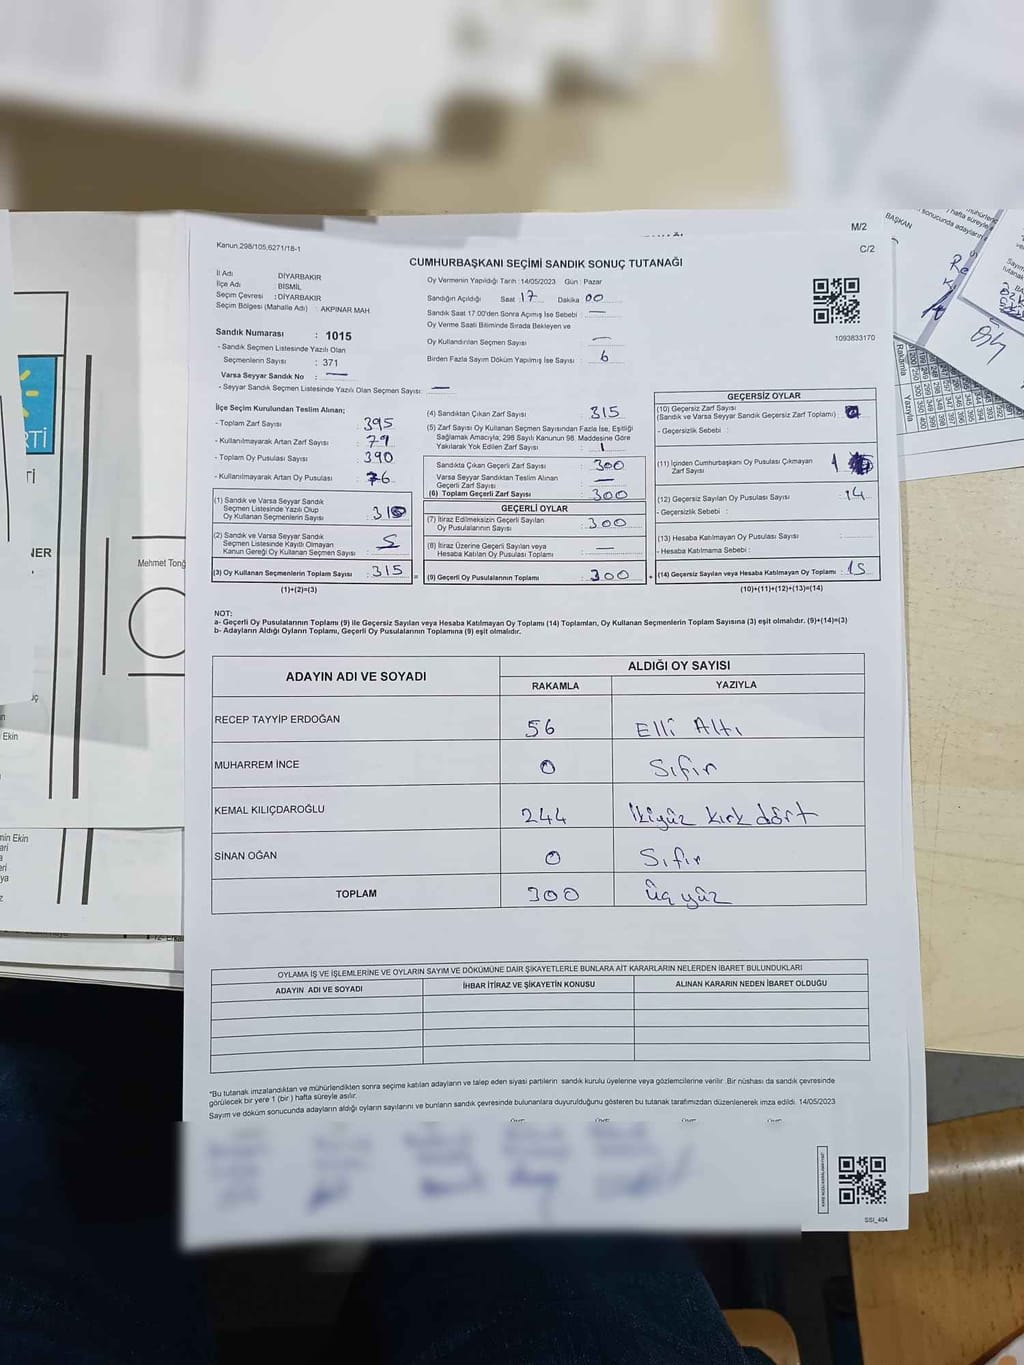 M/2
C/2
Kanun,298/105,6271/18-1
CUMHURBAŞKANI SEÇİMİ SANDIK SONUÇ TUTANAĞI
İl Adı : DİYARBAKIR
İlçe Adı : BİSMİL
Seçim Çevresi : DİYARBAKIR
Seçim Bölgesi (Mahalle Adı) : AKPINAR MAH
Sandık Numarası : 1015
- Sandık Seçmen Listesinde Yazılı Olan
Seçmenlerin Sayısı : 371
Varsa Seyyar Sandık No : —
- Seyyar Sandık Seçmen Listesinde Yazılı Olan Seçmen Sayısı: —
Oy Vermenin Yapıldığı Tarih :14/05/2023 Gün : Pazar
Sandığın Açıldığı Saat 17 Dakika 00
Sandık Saat 17.00'den Sonra Açımış İse Sebebi : —
Oy Verme Saati Bitiminde Sırada Bekleyen ve
Oy Kullandırılan Seçmen Sayısı : —
Birden Fazla Sayım Döküm Yapılmış İse Sayısı : 6
1093833170
İlçe Seçim Kurulundan Teslim Alınan;
- Toplam Zarf Sayısı : 395
- Kullanılmayarak Artan Zarf Sayısı : 79
- Toplam Oy Pusulası Sayısı : 390
- Kullanılmayarak Artan Oy Pusulası : 76
(1) Sandık ve Varsa Seyyar Sandık
Seçmen Listesinde Yazılı Olup
Oy Kullanan Seçmenlerin Sayısı : 310
(2) Sandık ve Varsa Seyyar Sandık
Seçmen Listesinde Kayıtlı Olmayan
Kanun Gereği Oy Kullanan Seçmen Sayısı : 5
(3) Oy Kullanan Seçmenlerin Toplam Sayısı : 315
(1)+(2)=(3)
(4) Sandıktan Çıkan Zarf Sayısı : 315
(5) Zarf Sayısı Oy Kullanan Seçmen Sayısından Fazla İse, Eşitliği
Sağlamak Amacıyla; 298 Sayılı Kanunun 98. Maddesine Göre
Yakılarak Yok Edilen Zarf Sayısı : 1
Sandıkta Çıkan Geçerli Zarf Sayısı : 300
Varsa Seyyar Sandıktan Teslim Alınan
Geçerli Zarf Sayısı : —
(6) Toplam Geçerli Zarf Sayısı : 300
GEÇERLİ OYLAR
(7) İtiraz Edilmeksizin Geçerli Sayılan
Oy Pusulalarının Sayısı : 300
(8) İtiraz Üzerine Geçerli Sayılan veya
Hesaba Katılan Oy Pusulası Toplamı : —
= (9) Geçerli Oy Pusulalarının Toplamı : 300
GEÇERSİZ OYLAR
(10) Geçersiz Zarf Sayısı
(Sandık ve Varsa Seyyar Sandık Geçersiz Zarf Toplamı) :
- Geçersizlik Sebebi :
(11) İçinden Cumhurbaşkanı Oy Pusulası Çıkmayan
Zarf Sayısı : 1
(12) Geçersiz Sayılan Oy Pusulası Sayısı : 14
- Geçersizlik Sebebi :
(13) Hesaba Katılmayan Oy Pusulası Sayısı :
- Hesaba Katılmama Sebebi :
+ (14) Geçersiz Sayılan veya Hesaba Katılmayan Oy Toplamı : 15
(10)+(11)+(12)+(13)=(14)
NOT:
a- Geçerli Oy Pusulasının Toplamı (9) ile Geçersiz Sayılan veya Hesaba Katılmayan Oy Toplamı (14) Toplamları, Oy Kullanan Seçmenlerin Toplam Sayısına (3) eşit olmalıdır. (9)+(14)=(3)
b- Adayların Aldığı Oyların Toplamı, Geçerli Oy Pusulalarının Toplamına (9) eşit olmalıdır.
ADAYIN ADI VE SOYADI ALDIĞI OY SAYISI
RAKAMLA YAZIYLA
RECEP TAYYİP ERDOĞAN 56 Elli Altı
MUHARREM İNCE 0 Sıfır
KEMAL KILIÇDAROĞLU 244 İkiyüz kırk dört
SİNAN OĞAN 0 Sıfır
TOPLAM 300 Üç yüz
OYLAMA İŞ VE İŞLEMLERİNE VE OYLARIN SAYIM VE DÖKÜMÜNE DAİR ŞİKAYETLERLE BUNLARA AİT KARARLARIN NELERDEN İBARET BULUNDUKLARI
ADAYIN ADI VE SOYADI İHBAR İTİRAZ VE ŞİKAYETİN KONUSU ALINAN KARARIN NEDEN İBARET OLDUĞU
*Bu tutanak imzalandıktan ve mühürlendikten sonra seçime katılan adayların ve talep eden siyasi partilerin sandık kurulu üyelerine veya gözlemcilerine verilir. Bir nüshası da sandık çevresinde
görülecek bir yere 1 (bir ) hafta süreyle asılır.
Sayım ve döküm sonucunda adayların aldığı oyların sayılarını ve bunların sandık çevresinde bulunanlara duyurulduğunu gösteren bu tutanak tarafımızdan düzenlenerek imza edildi. 14/05/2023
SSI_404
Mehmet Tonğ
BAŞKAN
Rakamla
Yazıyla